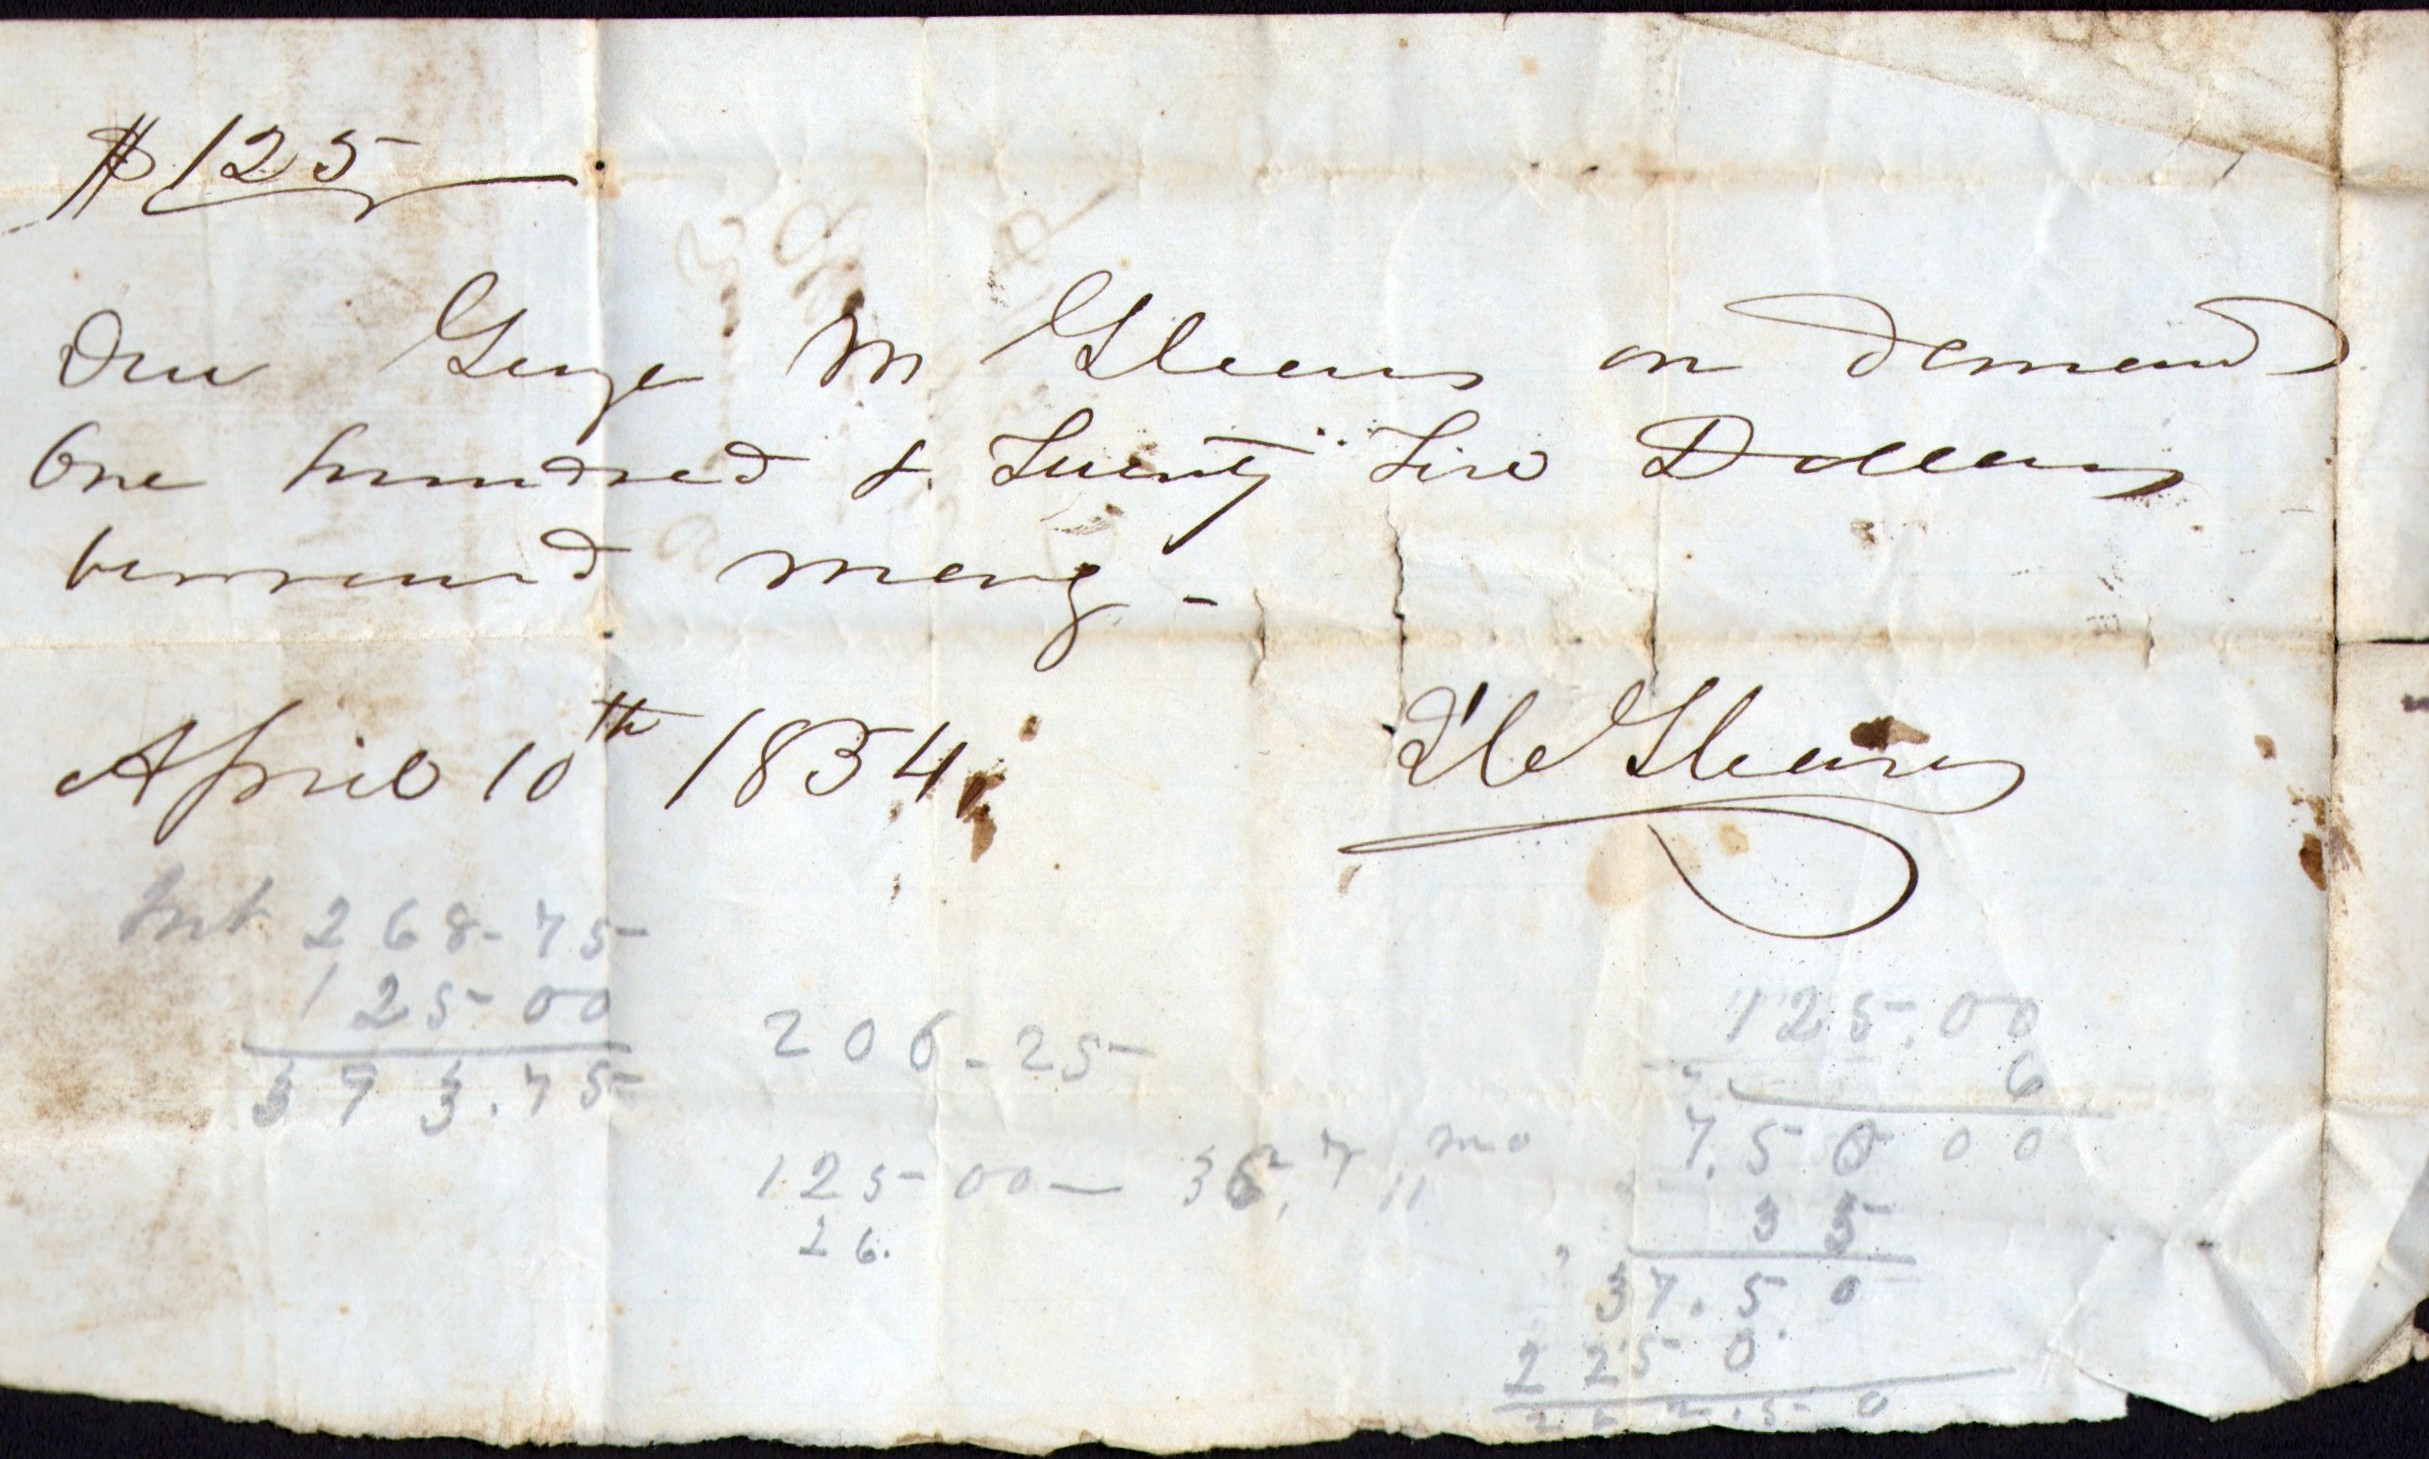 $125
Due George M Gleason on demand
One hundred & Twenty Five Dollars
borrowed money -
April 10th 1854
Gleason
Int 268-75
125 00
373.75
206-25
125-00 — 7 mo
26.
125.00
6
7.50 00
35
37.50
2250